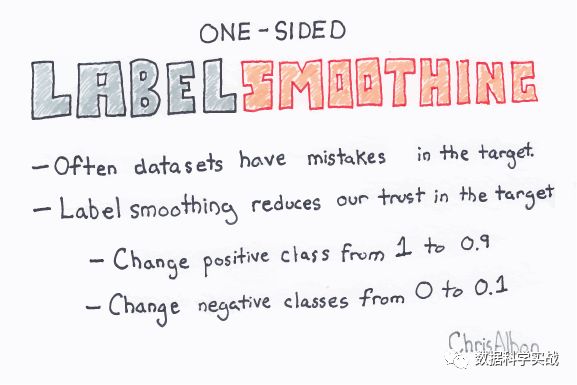 ONE-SIDED
LABEL SMOOTHING
- Often datasets have mistakes in the target.
- Label smoothing reduces our trust in the target
- Change positive class from 1 to 0.9
- Change negative classes from 0 to 0.1
Chris Albon
数据科学实战